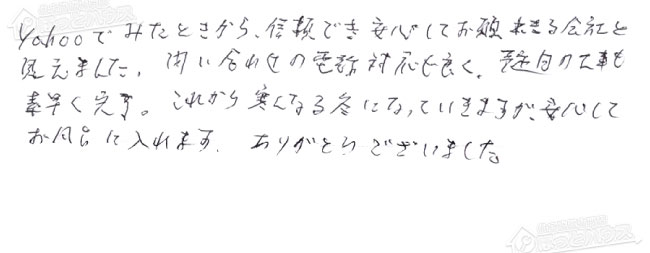 Yahooでみたときから、信頼でき安心してお願い出来る会社と
思えました。問い合わせの電話対応も良く、当日の工事も
素早く完了。これから寒くなる冬になっていきますが、安心して
お風呂に入れます。ありがとうございました。